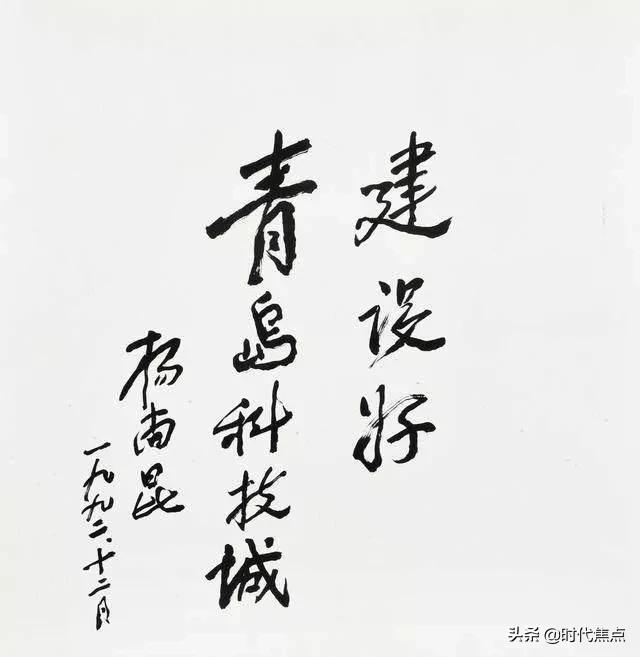 建设好
青岛科技城
杨尚昆
一九九二、十二月
头条 @时代焦点